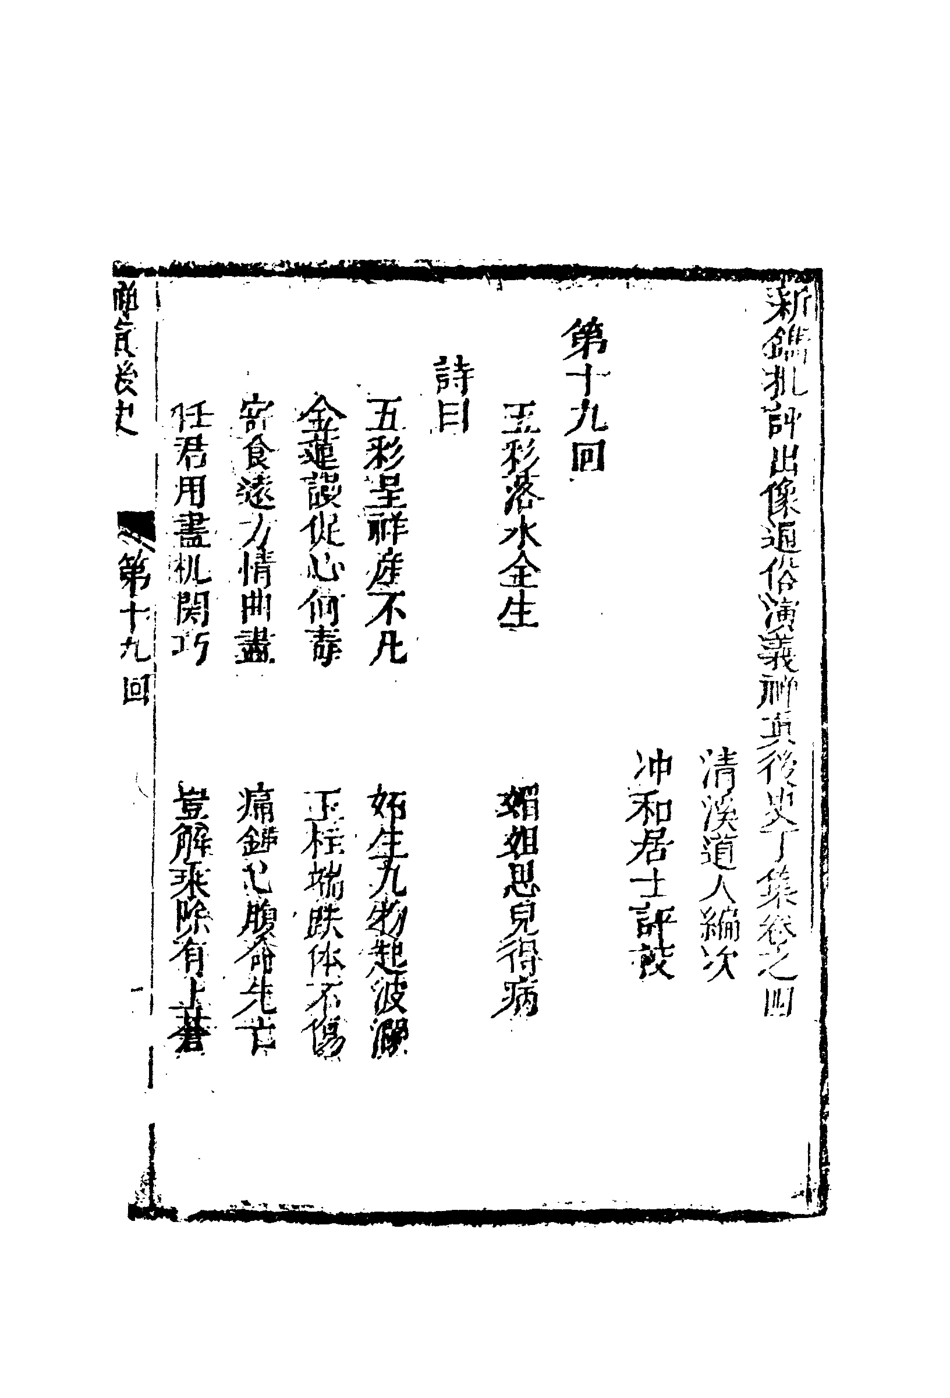 新鐫批評出像通俗演義禪真後史丁集卷之四
清溪道人編次
冲和居士評校
第十九回
五彩落水全生　媚姐思兒得病
詩曰
五彩呈祥産不凡　妬生九物起波瀾
金蓮謾促心何毒　玉柱端跌体不傷
寄食遠方情曲盡　痛歸心腹命先亡
任君用盡机関巧　豈解乘除有上蒼
禪真後史
第十九回
一